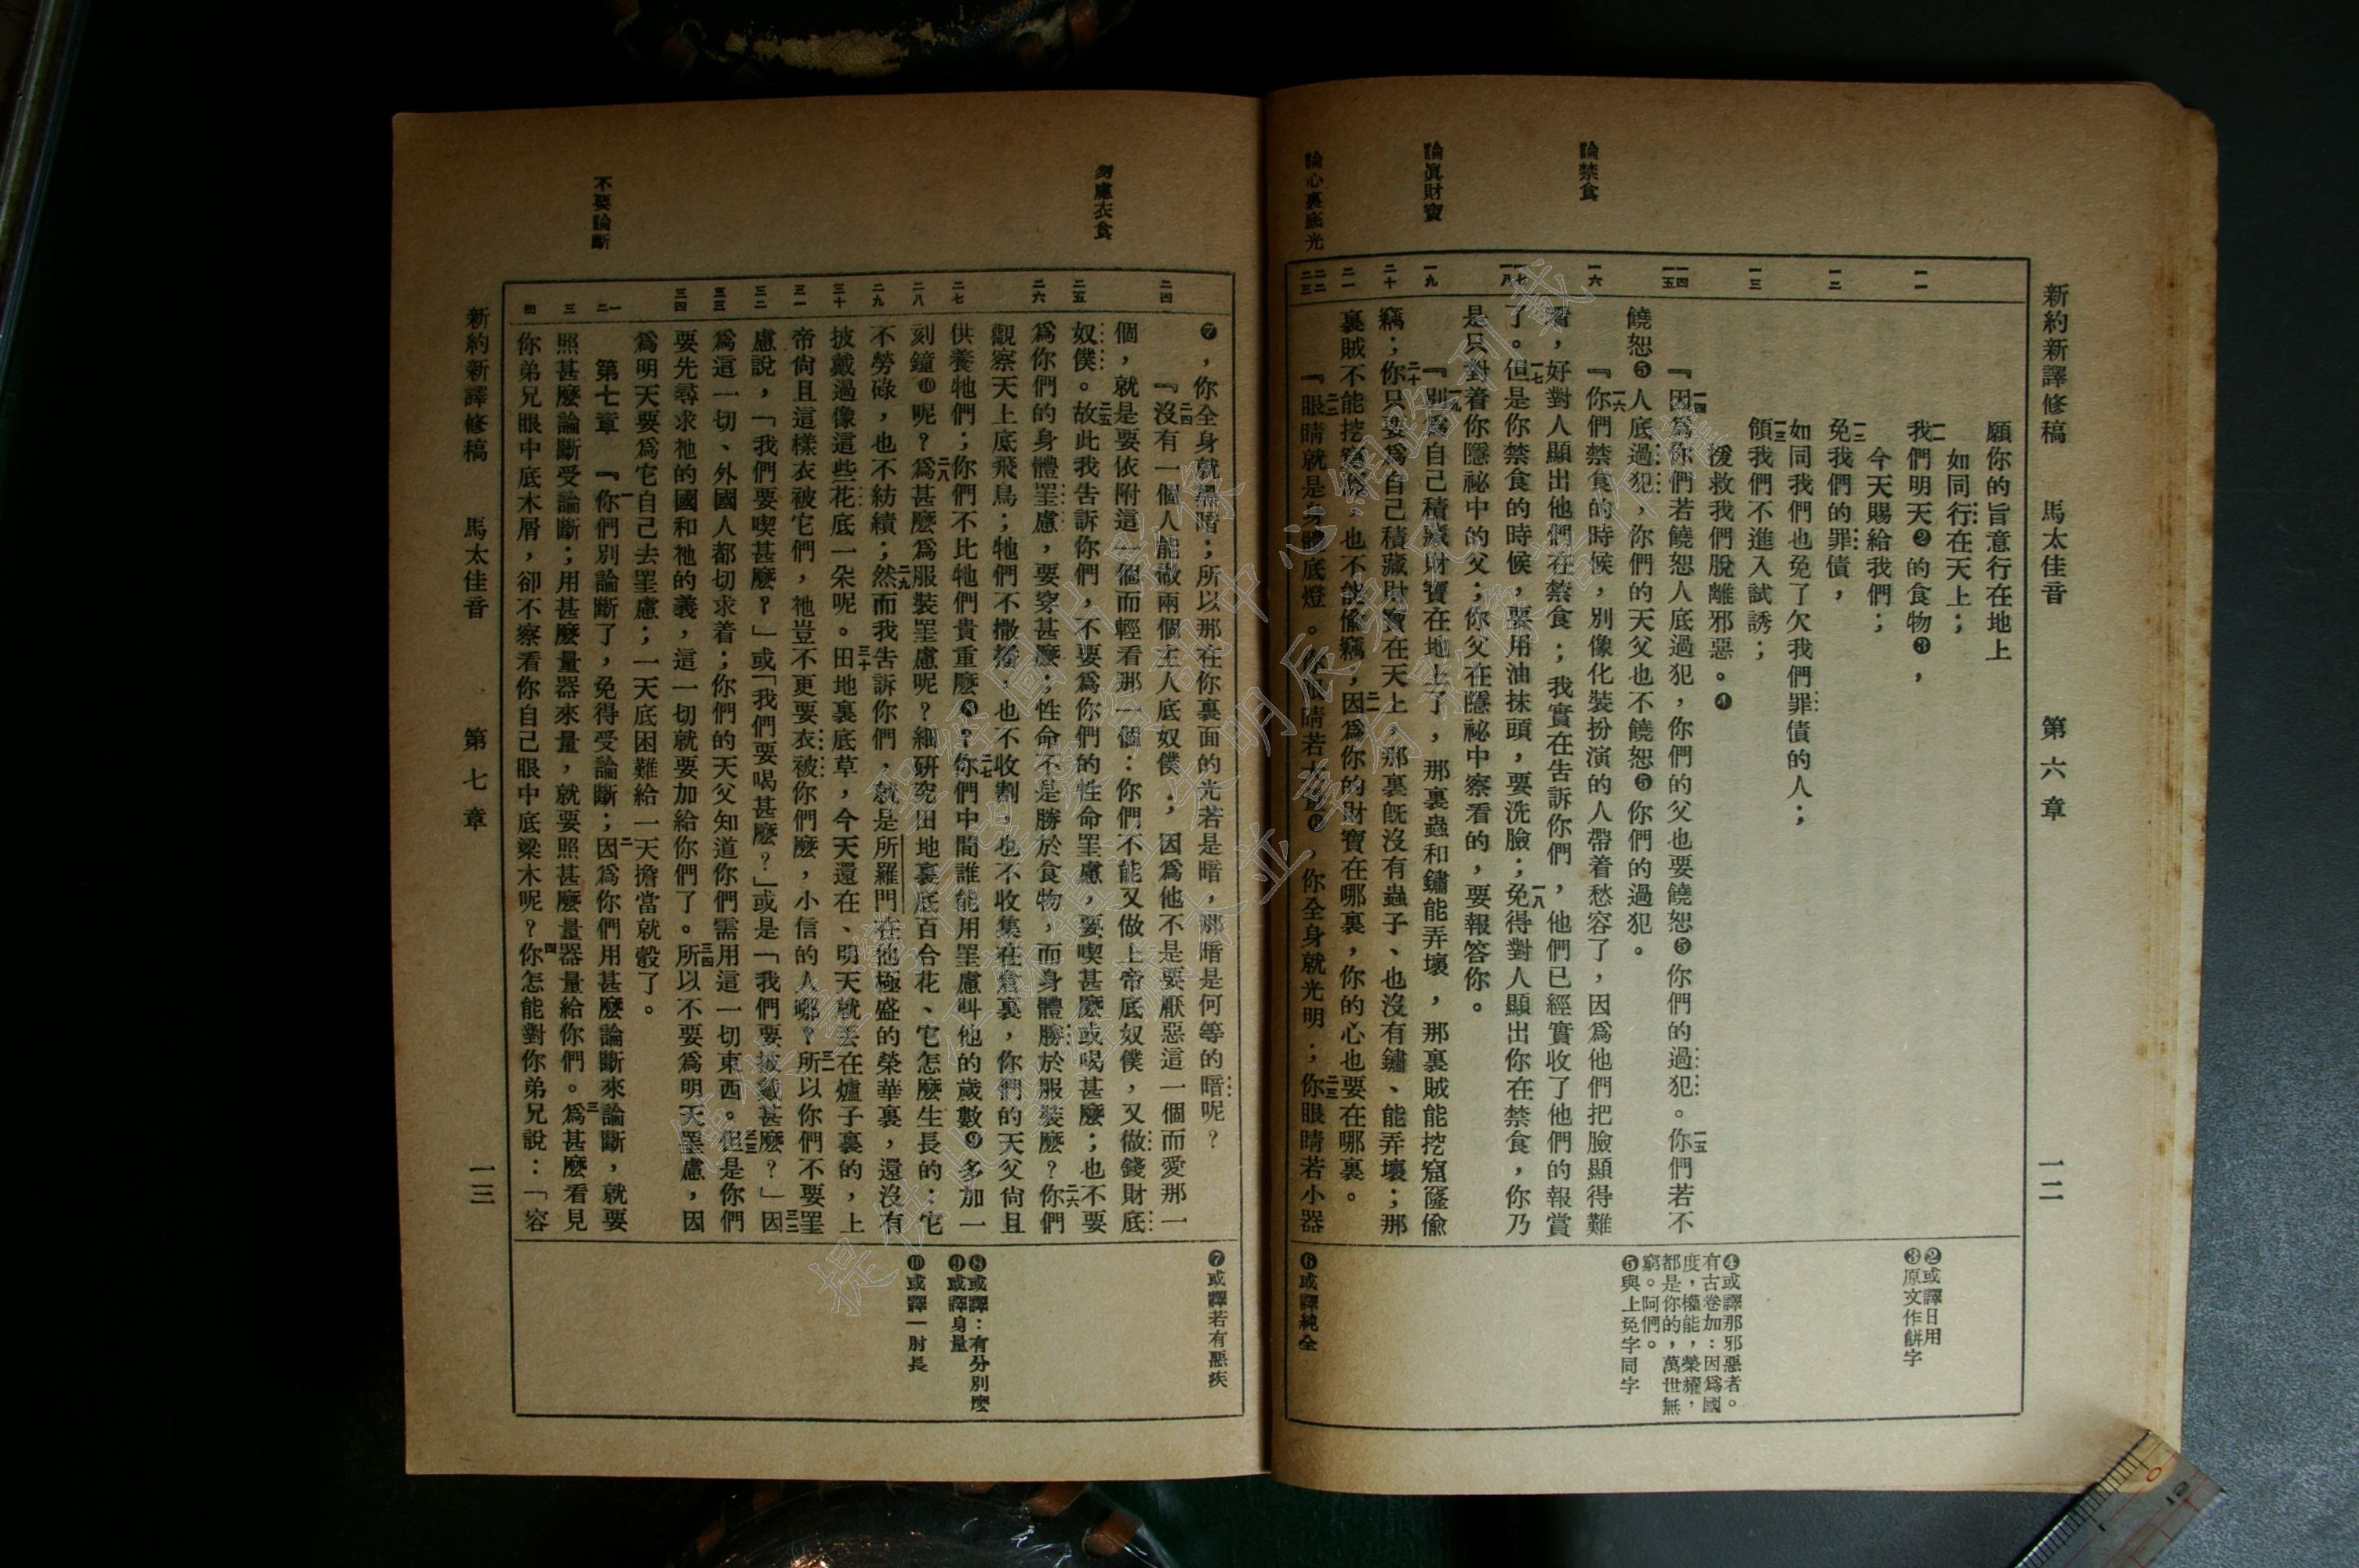 新約新譯修稿 馬太佳音 第六章 一二
論禁食
論眞財寶
論心裏底光
一一
一二
一三
一四
一五
一六
一七
一八
一九
二十
二一
二二
二三
願你的旨意行在地上
如同行在天上；
一一我們明天❷的食物❸，
今天賜給我們；
一二免我們的罪債，
如同我們也免了欠我們罪債的人；
一三領我們不進入試誘；
援救我們脫離邪惡。❹
一四『因爲你們若饒恕人底過犯，你們的父也要饒恕❺你們的過犯。一五你們若不
饒恕❺人底過犯，你們的天父也不饒恕❺你們的過犯。
一六『你們禁食的時候，別像化裝扮演的人帶着愁容了，因爲他們把臉顯得難
看，好對人顯出他們在禁食；我實在告訴你們，他們已經實收了他們的報賞
了。一七但是你禁食的時候，要用油抹頭，要洗臉；一八免得對人顯出你在禁食，你乃
是只對着你隱祕中的父；你父在隱祕中察看的，要報答你。
一九『別爲自己積藏財寶在地上了，那裏蟲和鏽能弄壞，那裏賊能挖窟窿偸
竊；二十你只要爲自己積藏財寶在天上，那裏旣沒有蟲子、也沒有鏽、能弄壞；那
裏賊不能挖窟窿，也不能偸竊，二一因爲你的財寶在哪裏，你的心也要在哪裏。
二二『眼睛就是身體底燈。你眼睛若大量❻，你全身就光明；二三你眼睛若小器
❷或譯日用
❸原文作餅字
❹或譯那邪惡者。
有古卷加：因爲國
度，權能，榮耀，
都是你的，萬世無
窮。阿們。
❺與上免字同字
❻或譯純全
勿慮衣食
不要論斷
二四
二五
二六
二七
二八
二九
三十
三一
三二
三三
三四
一
二
三
四
❼，你全身就黑暗；所以那在你裏面的光若是暗，那暗是何等的暗呢？
二四『沒有一個人能做兩個主人底奴僕；因爲他不是要厭惡這一個而愛那一
個，就是要依附這一個而輕看那一個：你們不能又做上帝底奴僕，又做錢財底
奴僕。二五故此我告訴你們，不要爲你們的性命罣慮，要喫甚麼或喝甚麼；也不要
爲你們的身體罣慮，要穿甚麼；性命不是勝於食物，而身體勝於服裝麼？二六你們
觀察天上底飛鳥；牠們不撒種，也不收割，也不收集在倉裏，你們的天父尙且
供養牠們；你們不比牠們貴重麼❽？二七你們中間誰能用罣慮叫他的歲數❾多加一
刻鐘❿呢？二八爲甚麼爲服裝罣慮呢？細研究田地裏底百合花、它怎麼生長的：它
不勞碌，也不紡績；二九然而我告訴你們，就是所羅門在他極盛的榮華裏，還沒有
披戴過像這些花底一朵呢。三十田地裏底草，今天還在、明天就丟在爐子裏的，上
帝尙且這樣衣被它們，祂豈不更要衣被你們麼，小信的人哪？三一所以你們不要罣
慮說，「我們要喫甚麼？」或「我們要喝甚麼？」或是「我們要披戴甚麼？」三二因
爲這一切、外國人都切求着；你們的天父知道你們需用這一切東西。三三但是你們
要先尋求祂的國和祂的義，這一切就要加給你們了。三四所以不要爲明天罣慮，因
爲明天要爲它自己去罣慮；一天底困難給一天擔當就彀了。
第七章 一『你們別論斷了，免得受論斷；二因爲你們用甚麼論斷來論斷，就要
照甚麼論斷受論斷；用甚麼量器來量，就要照甚麼量器量給你們。三爲甚麼看見
你弟兄眼中底木屑，卻不察看你自己眼中底梁木呢？四你怎能對你弟兄說：「容
❼或譯若有惡疾
❽或譯：有分別麼
❾或譯身量
❿或譯一肘長
新約新譯修稿 馬太佳音 第七章 一三